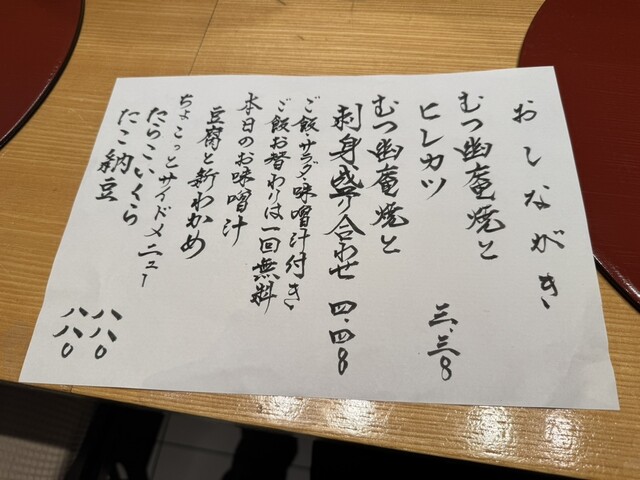 おしながき
むつ幽庵焼と
ヒレカツ 三、三〇
むつ幽庵焼と
刺身盛り合わせ 四、四〇
ご飯・サラダ・味噌汁付き
ご飯お替わりは一回無料
本日のお味噌汁
豆腐と新わかめ
ちょこっとサイドメニュー
たらこいくら 八八〇
たこ納豆 八八〇